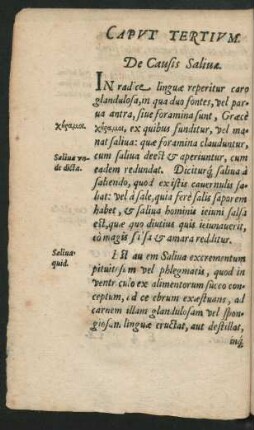 CAPVT TERTIVM.
De Causis Salivæ.
IN radice linguæ reperitur caro
glandulosa, in qua duo fontes, vel par
ua antra, siue foramina sunt, Græcè
ex quibus funditur, vel ma
nat saliua: quæ foramina clauduntur,
cum saliua deest & aperiuntur, cum
eadem redundat. Diciturq́ saliua à
saliendo, quod ex istis cauernulis sa
liat: vel à sale, quia ferè salis saporem
habet, & saliua hominis ieiuni salsa
est, quæ quo diutius quis ieiunauerit,
eò magis salsa & amara redditur.
Est autem Saliua excrementum
pituitosum vel phlegmatis, quod in
ventriculo ex alimentorum succo con
ceptum, id ad cerebrum exæstuans, ad
carnem illam glandulosam vel spon
giosam linguæ eructat, aut destillat,
inq́
Saliua vn
de dicta.
Saliua
quid.